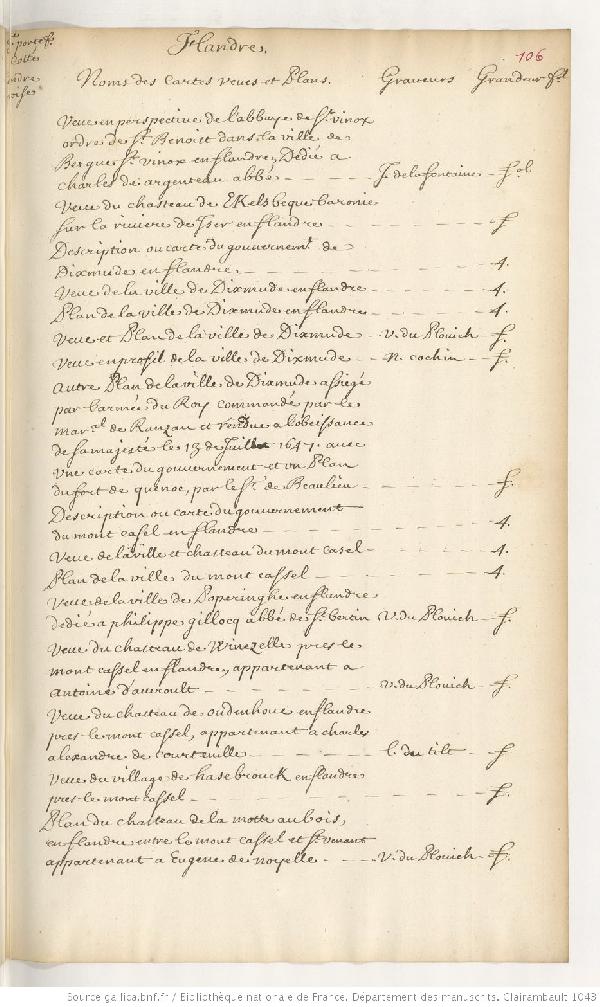 Flandres.
106
Noms des Cartes veues et Plans. Graveurs Grandeur
Veue en perspective de l'abbaye de St. vinox
ordre de St. Benoict dans la ville de
Bergue St. vinox en flandre, Dedié a
charles de argenteau abbé - J. de lafontaine - fol.
Veue du chasteau de EKelsbeque baronie
sur la riviere de Jser en flandre - f
Description ou carte du gouvernemt. de
Dixmude en flandre. - 4.
Veue de la ville de Dixmude en flandre - 4.
Plan de la ville de Dixmude en flandre - 4.
Veue et Plan de la ville de Dixmude - v. du Plouich - f.
Veue en profil de la ville de Dixmude - n. cochin - f.
Autre Plan de la ville de Dixmude assiegé
par l'armée du Roy commandé par le
marcal. de Ranzau et rendue a l'obeissance
de sa majesté le 13 de Juillet 1647. avec
vne carte du gouvernement et vn Plan
du fort de quenoc, par le Sr. de Beaulieu - f.
Description ou carte du gouvernement
du mont casel en flandre - 4.
Veue de la ville et chasteau du mont casel - 4.
Plan de la ville du mont cassel - 4.
Veue de la ville de Poperinghe en flandre
dedié a philippe gillocq abbé de St. bertin V. du Plouich - f.
Veue du chasteau de Winezelle pres le
mont cassel en flandre, appartenant a
Antoine d'auroult - V. du Plouich - f.
Veue du chasteau de oudenhoue en flandre
pres le mont cassel, appartenant a charles
alexandre de courteuille - l. du tilt - f
Veue du village de hasebrouck en flandre
pres le mont cassel - f.
Plan du chasteau de la motte au bois,
en flandre entre le mont cassel et St. venant
appartenant a Eugene de noyelle - V. du Plouich - f.
Source gallica.bnf.fr / Bibliothèque nationale de France. Département des manuscrits. Clairambault 1043